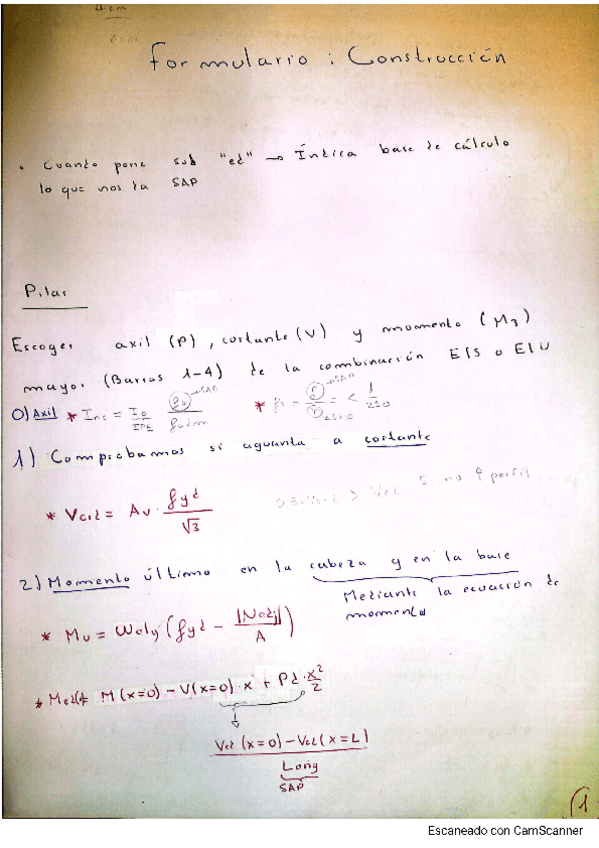 Formulario: Construcción
• Cuando pone sub "ed" → Índica base de cálculo
lo que nos da SAP
Pilar
Escoger axil (P), cortante (V) y momento (M3)
mayor (Barras 1-4) de la combinación ElS o ElU
0) Axil
SAP
SAP
< 1/250
1) Comprobamos si aguanta a cortante
* Vcrd = Av · fyd/√3
Si no ↑ perfil
2) Momento último en la cabeza y en la base
Mediante la ecuación de
momento
* Mu = Wely (fyd - |Nedj|/A)
M(x=0) - V(x=0)·x + Pd·x²/2
Ved (x=0) - Ved (x=L)
Long
SAP
1
Escaneado con CamScanner